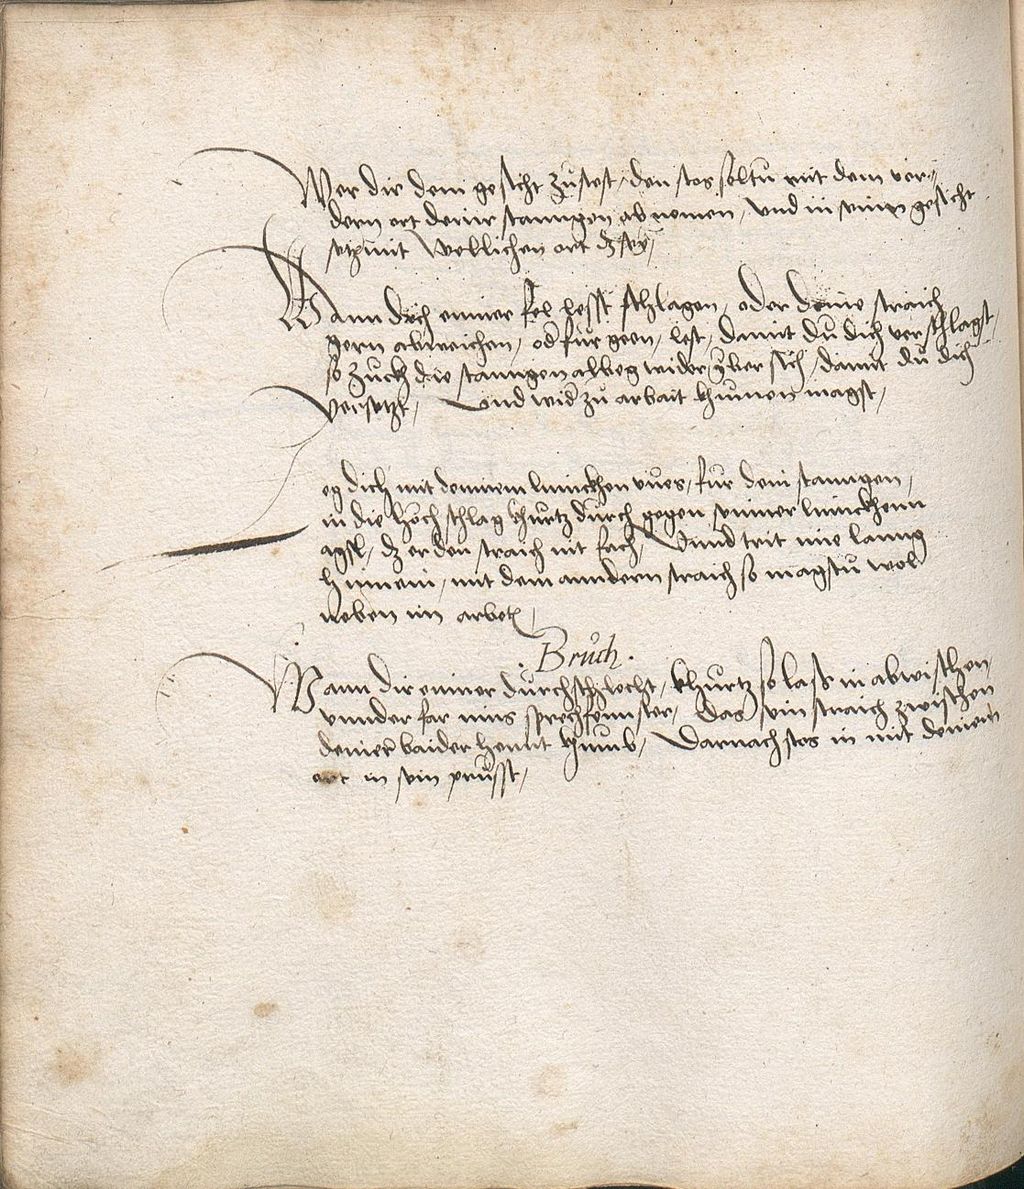 Wer dir dem gesicht zůstost, den stos soltu mit dem ver-
dern ort deiner stanngen ab nemen, Und in seinn gesicht
setz mit welichen ort dz sey,
Wann dich einner fel lesst schlagen, oder deine straich
gern abweichen, od für geen, lest, damit dů dich verschlagst,
so zuckh die stanngen alweg wider yber sich, damit dů dich
versetzt, Und wid zů arbait khumen magst,
Leg dich mit deinem linnckhen fůes, für dein stanngen,
in die hoch schlag khurtz důrch gegen seinner linnckhenn
agsl, dz er den straich nit fach, Unnd trit nie lanng
hinnein, mit dem anndern straich so magstů wol
neben im arbet,
. Brůch .
Wann dir einner důrchschlecht, khurtz so lass in abwischen,
unnder far inns sprechfennster, Das sein straich zwischen
deiner baider hennt khumb, Darnach stos in mit deinem
ort in sein prusst,